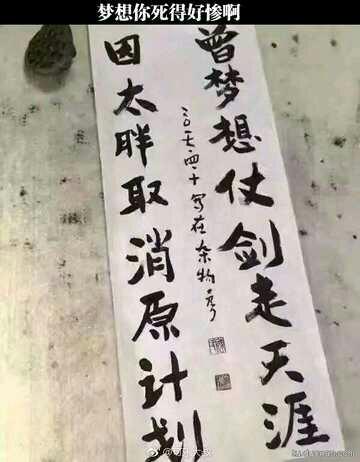 梦想你死得好惨啊
曾梦想仗剑走天涯
因太胖取消原计划
二〇一七·四·十写在杂物